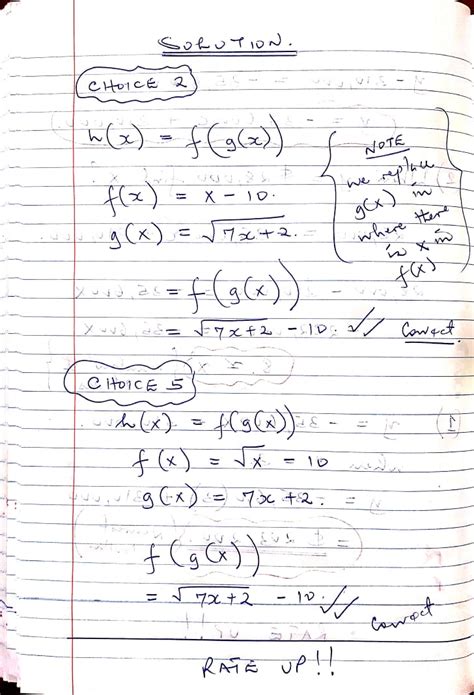 SOLUTION.
CHOICE 2
h(x) = f(g(x))
f(x) = x - 10.
g(x) = √7x+2.
NOTE
we replace
g(x) in
where there
is x in
f(x)
= f(g(x))
= √7x+2 - 10. ✓✓ Correct.
CHOICE 5
h(x) = f(g(x))
f(x) = √x - 10
g(x) = 7x+2.
f(g(x))
= √7x+2 - 10. ✓✓
Correct
RATE UP!!